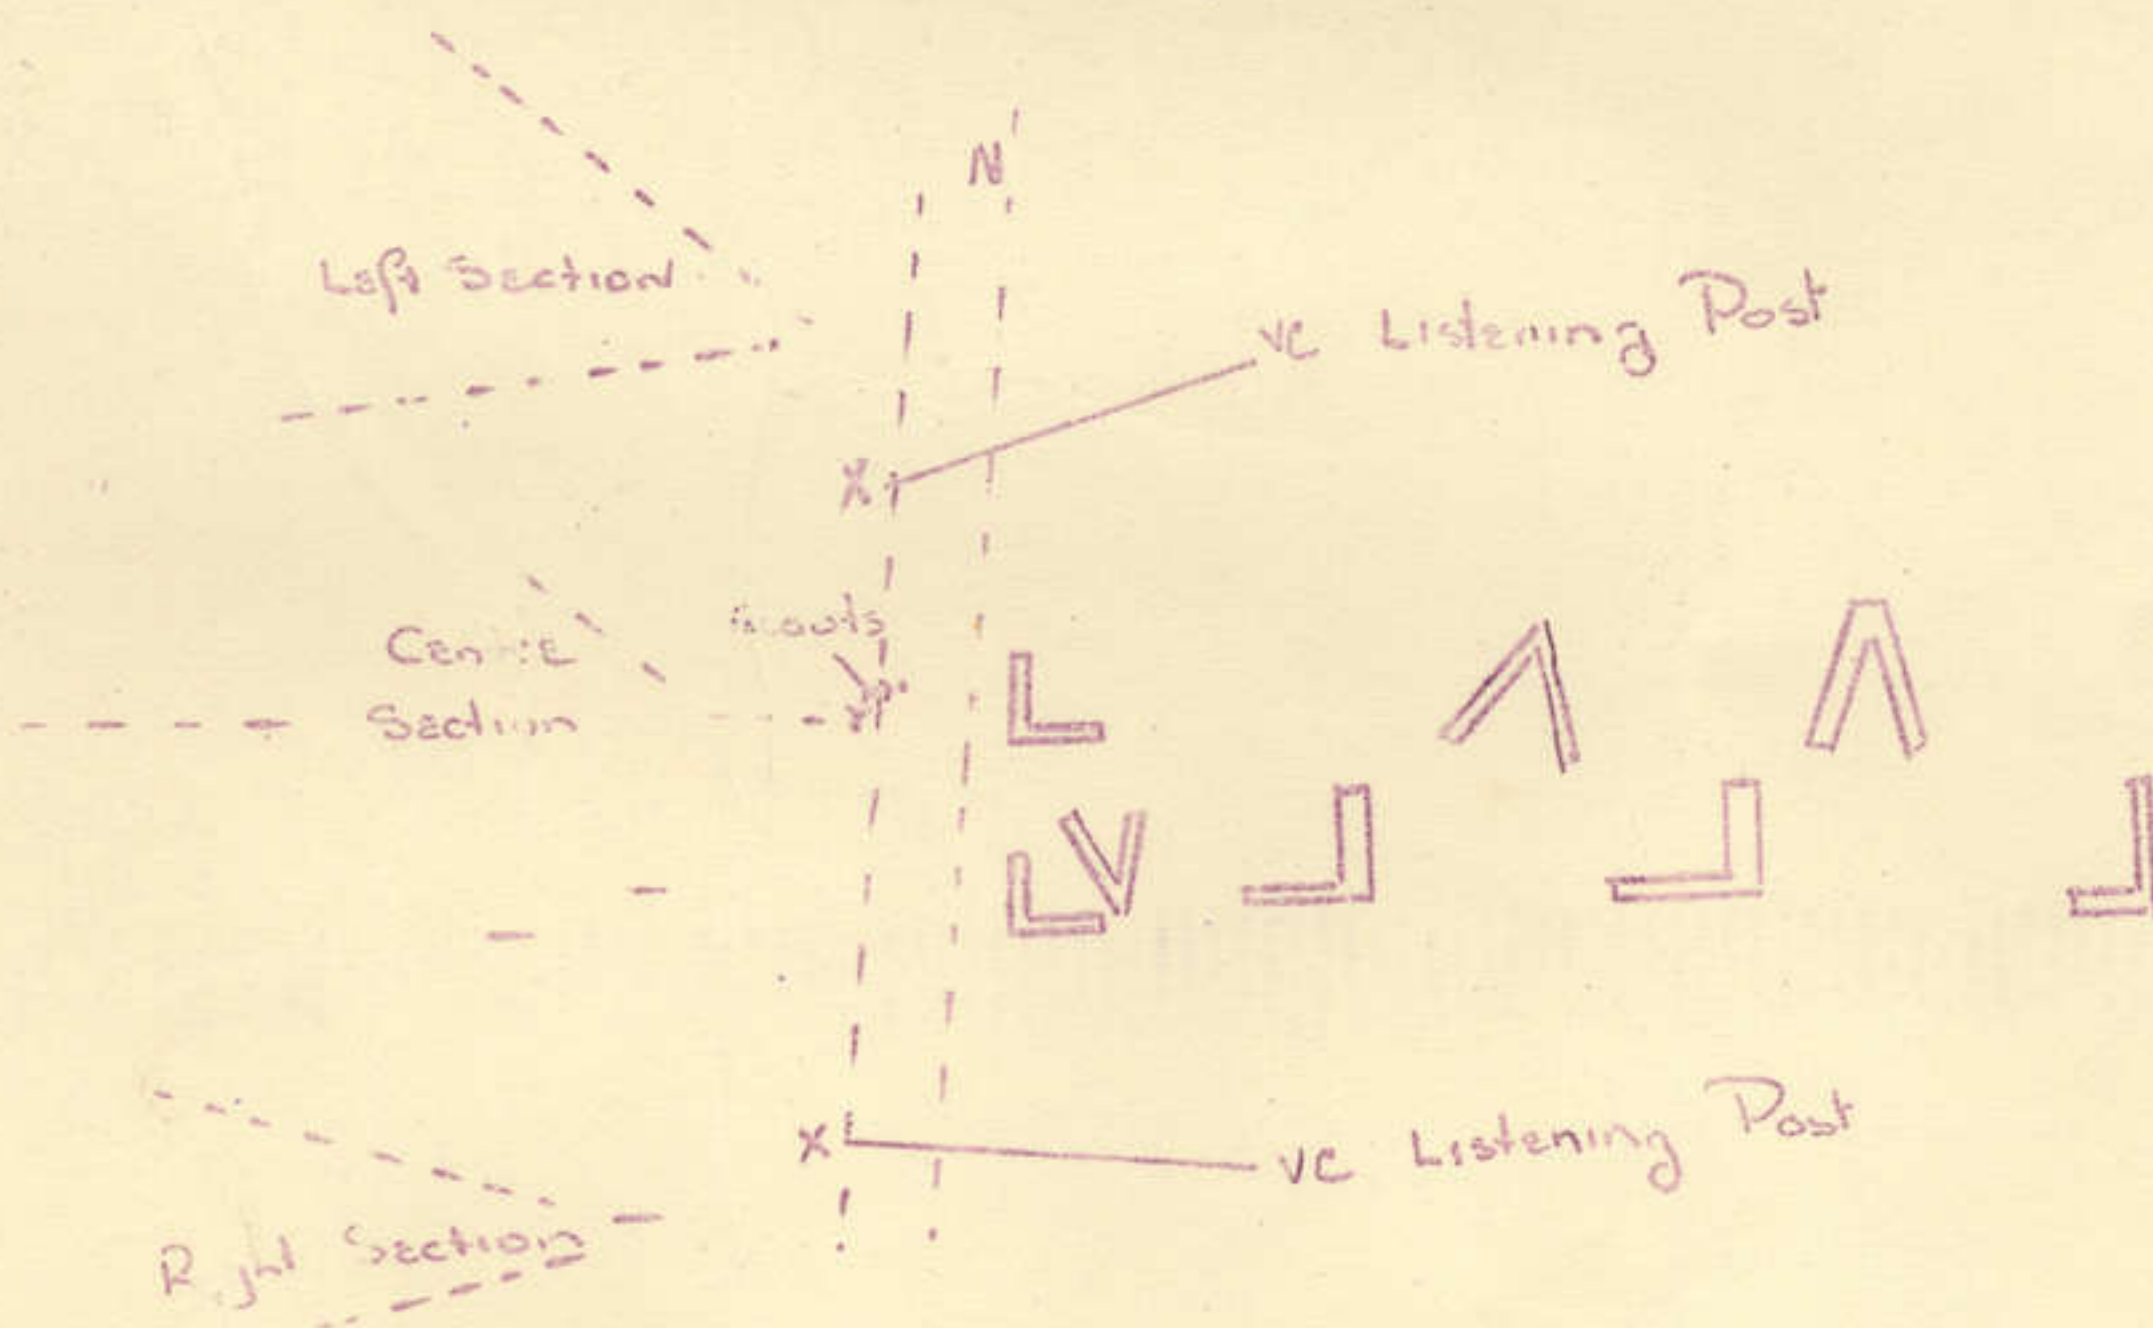 N
Left Section
VC Listening Post
X
Scouts
Centre
Section
X
VC Listening Post
Right Section